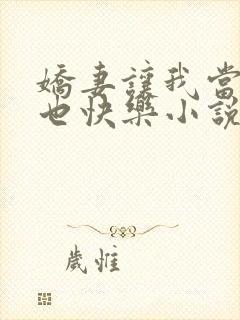 嬌妻讓我當
也快樂小說
歲惟